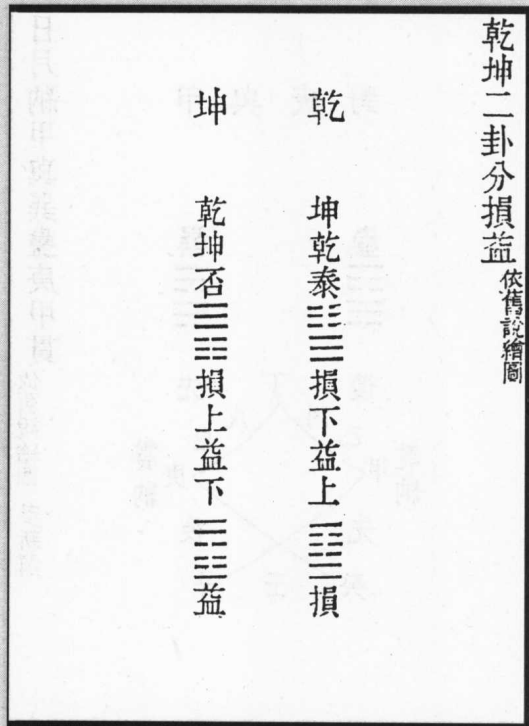 乾坤二卦分損益依舊說繪圖
乾 坤乾泰損下益上損
坤 乾坤否損上益下益